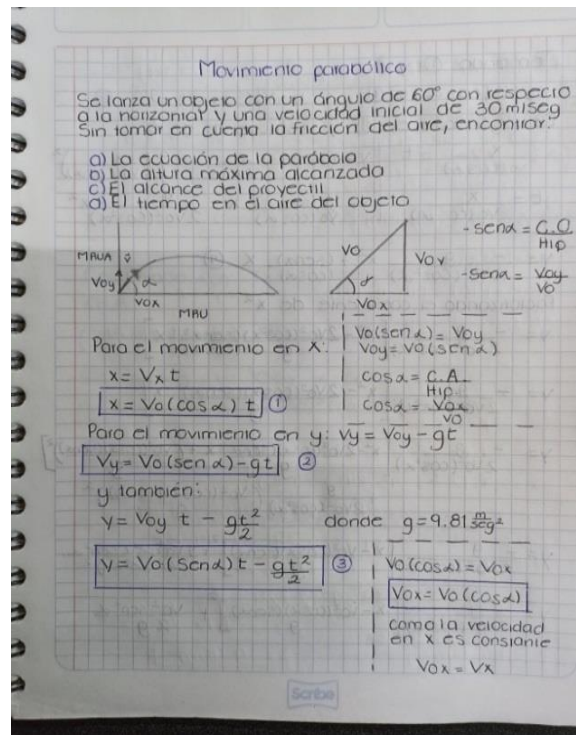 Movimiento parabólico
Se lanza un objeto con un ángulo de 60° con respecto
a la horizontal y una velocidad inicial de 30 m/seg
Sin tomar en cuenta la fricción del aire, encontrar:
a) La ecuación de la parábola
b) La altura máxima alcanzada
c) El alcance del proyectil
d) El tiempo en el aire del objeto
MRUA
Voy
α
Vox
MRU
Vo
Voy
α
Vox
- senα = C.O / Hip
- senα = Voy / Vo
Vo(senα) = Voy
Voy = Vo(senα)
cosα = C.A. / Hip
cosα = Vox / Vo
Para el movimiento en x:
x = Vx t
x = Vo(cosα) t ①
Para el movimiento en y: Vy = Voy - gt
Vy = Vo(senα) - gt ②
y también:
y = Voy t - gt²/2 donde g = 9.81 m/seg²
y = Vo(senα)t - gt²/2 ③
Vo(cosα) = Vox
Vox = Vo(cosα)
como la velocidad
en x es constante
Vox = Vx
Scribe